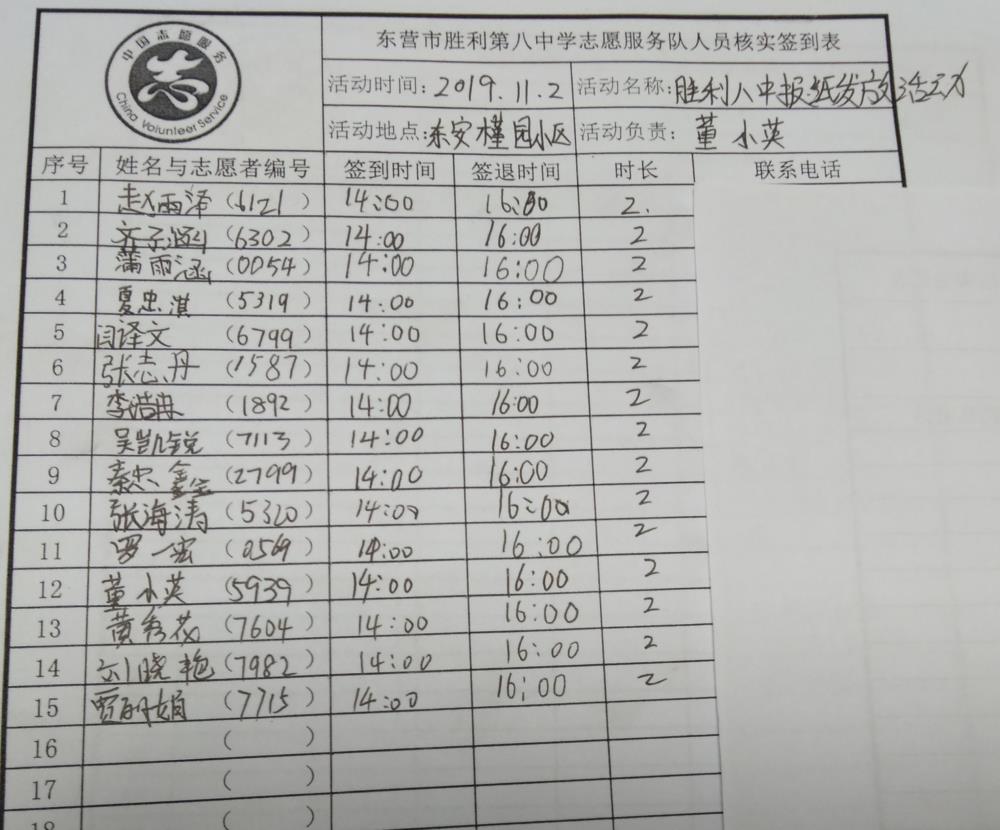 中国志愿服务
China Volunteer Service
东营市胜利第八中学志愿服务队人员核实签到表
活动时间：2019.11.2 活动名称：胜利八中报纸发放活动
活动地点：东安槿园小区 活动负责：董小英
序号 姓名与志愿者编号 签到时间 签退时间 时长 联系电话
1 赵雨泽（6121） 14:00 16:00 2.
2 齐子涵（6302） 14:00 16:00 2
3 蒲雨涵（0054） 14:00 16:00 2
4 夏忠淇（5319） 14:00 16:00 2
5 闫译文（6799） 14:00 16:00 2
6 张志丹（1587） 14:00 16:00 2
7 李浩冉（1892） 14:00 16:00 2
8 吴凯锐（7113） 14:00 16:00 2
9 秦忠鑫（2799） 14:00 16:00 2
10 张海涛（5320） 14:00 16:00 2
11 罗一宏（0569） 14:00 16:00 2
12 董小英（5939） 14:00 16:00 2
13 黄秀花（7604） 14:00 16:00 2
14 刘晓艳（7982） 14:00 16:00 2
15 贾丽娟（7715） 14:00 16:00 2
16 （ ）
17 （ ）
18 （ ）